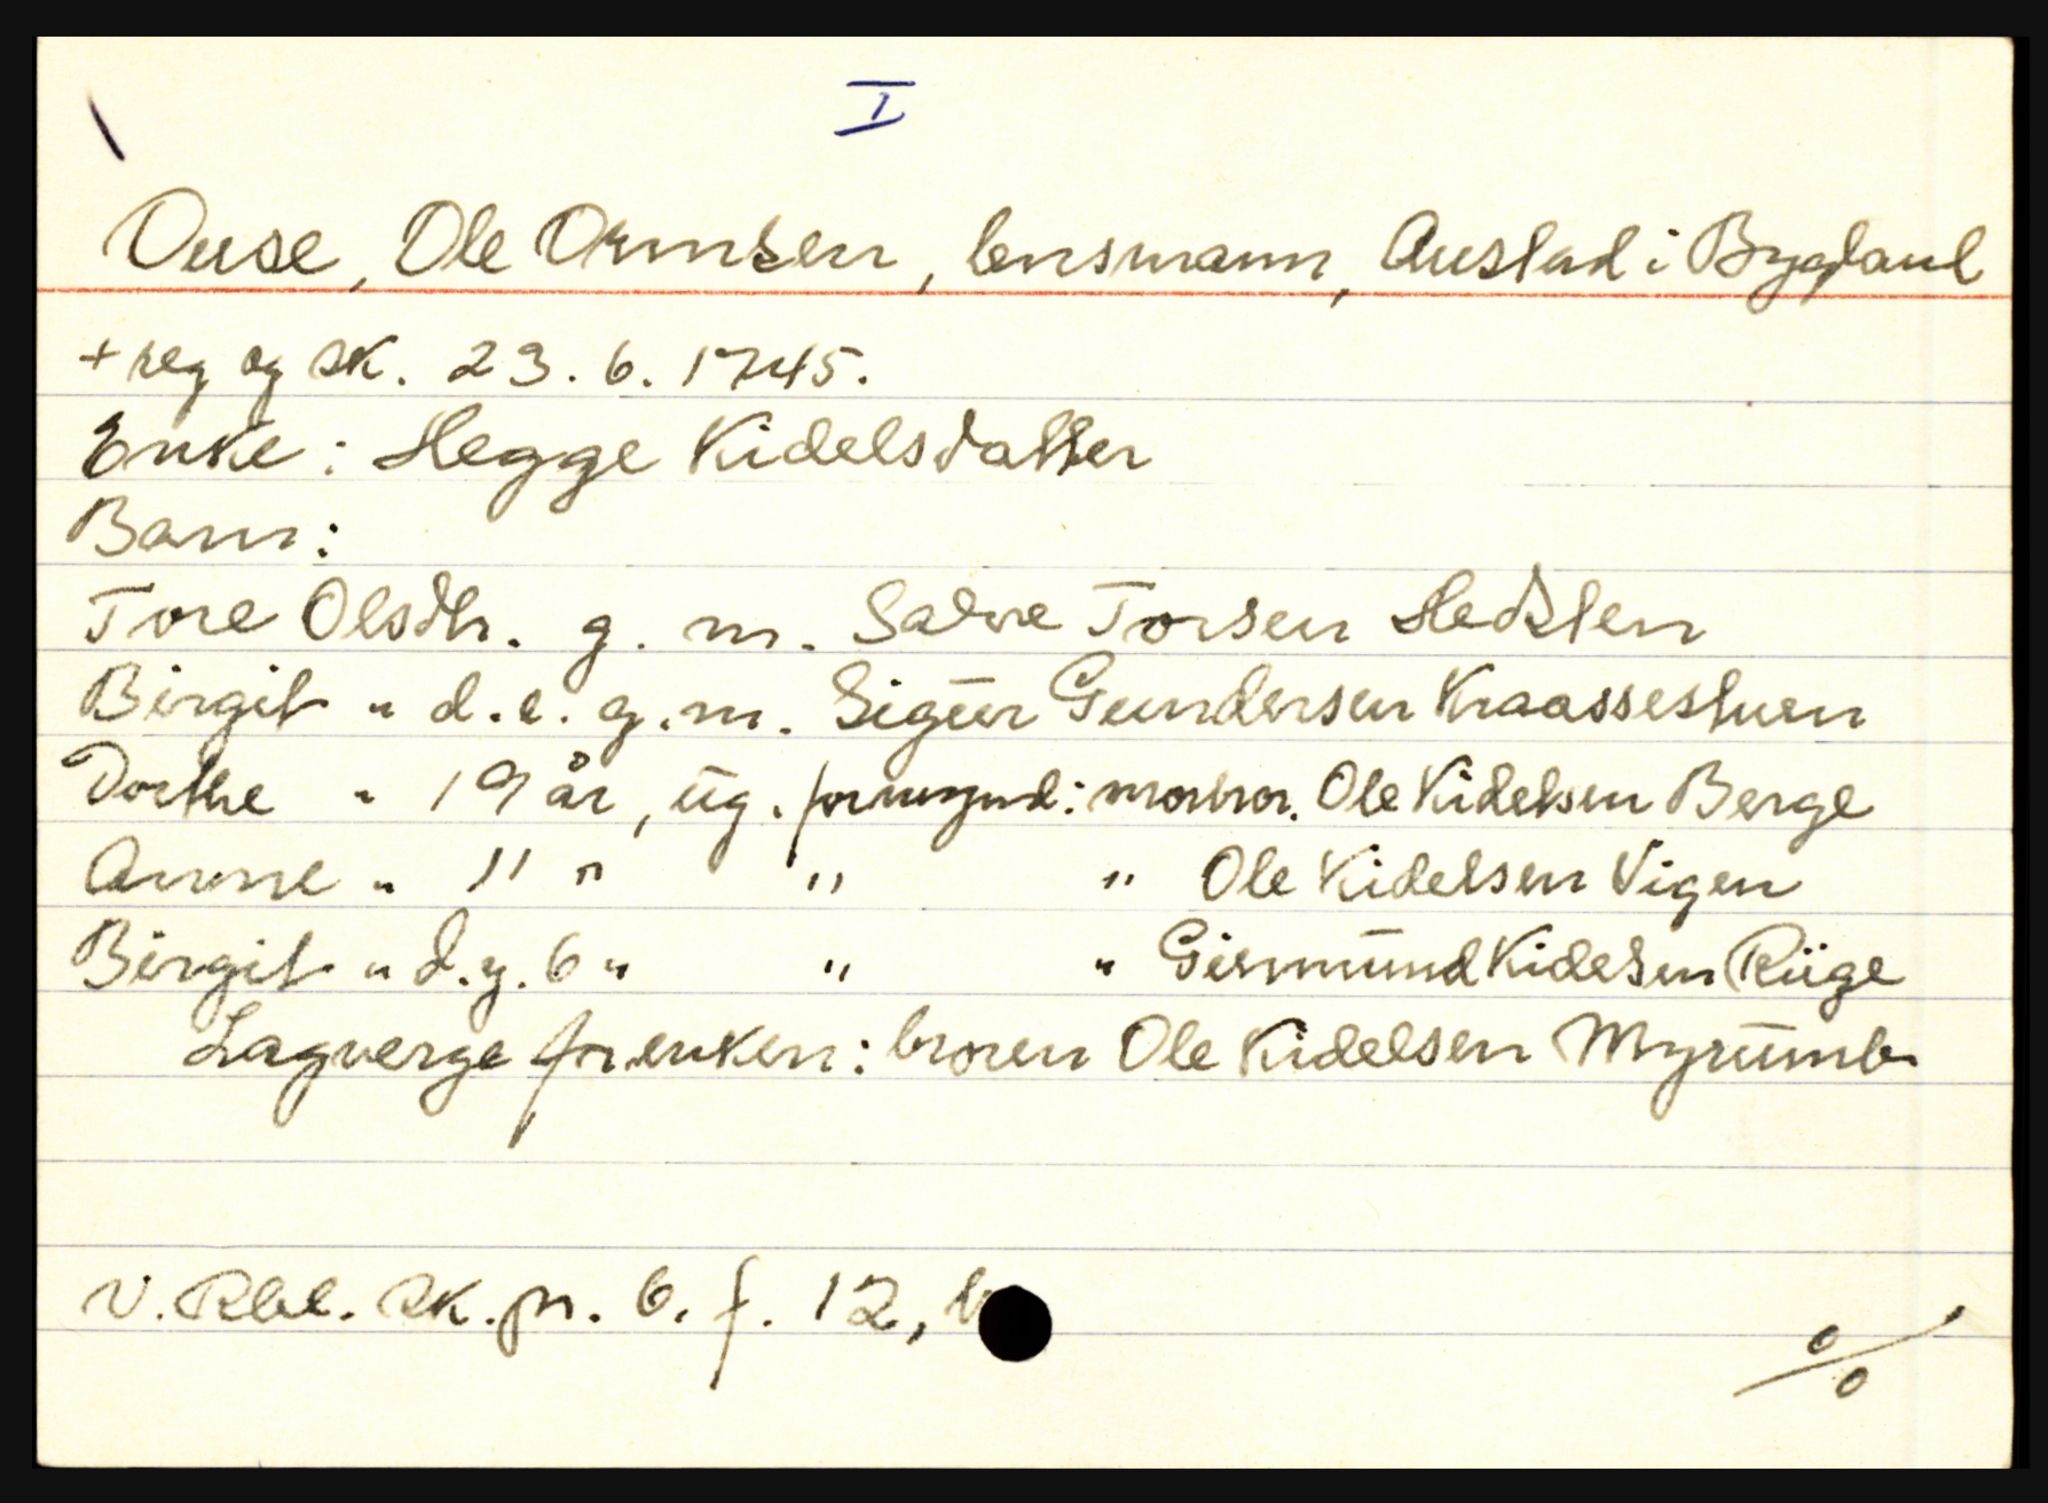 I
Ouse, Ole Ormsen, lensmann, Austad i Bygland
+ reg og sk. 23. 6. 1745.
Enke: Hegge Kidelsdatter
Barn:
Tore Olsdtr. g. m. Salve Torsen Hedsten
Birgit " d. e. g. m. Sigur Gundersen Kraassestuen
Dorthe " 19 år, ug. formynd: morbror. Ole Kidelsen Berge
Anne " 11 " " " Ole Kidelsen Vigen
Birgit " d. y. 6 " " " Giermund Kidelsen Riige
Lagverge for enken: broren Ole Kidelsen Myrumb
V. Rbl. sk. pr. 6. f. 12, b
%